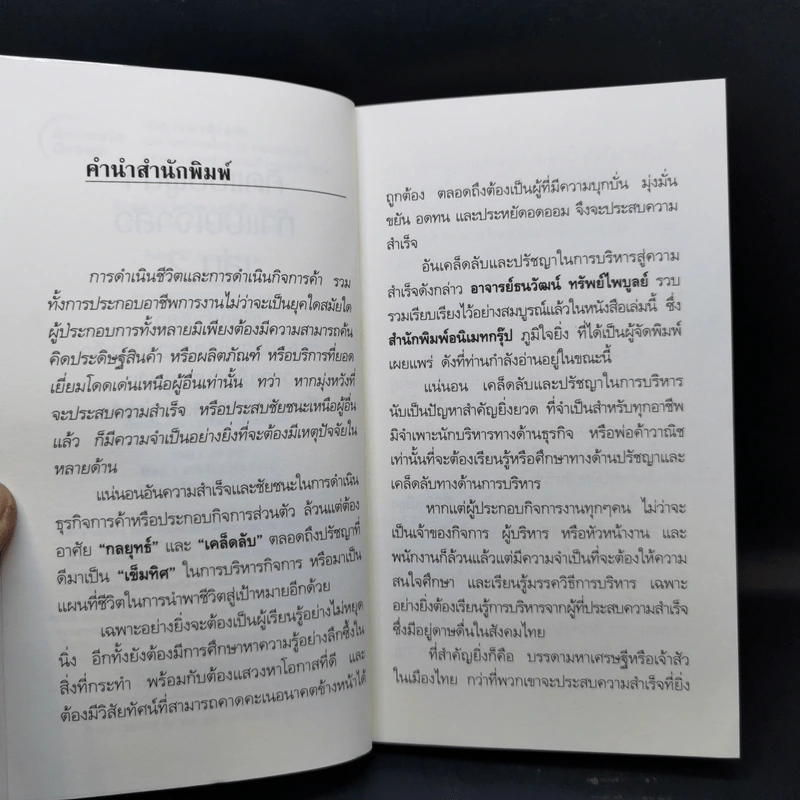 คำนำสำนักพิมพ์
การดำเนินชีวิตและการดำเนินกิจการค้า รวม
ทั้งการประกอบอาชีพการงานไม่ว่าจะเป็นยุคใดสมัยใด
ผู้ประกอบการทั้งหลายมิเพียงต้องมีความสามารถค้น
คิดประดิษฐ์สินค้า หรือผลิตภัณฑ์ หรือบริการที่ยอด
เยี่ยมโดดเด่นเหนือผู้อื่นเท่านั้น ทว่า หากมุ่งหวังที่
จะประสบความสำเร็จ หรือประสบชัยชนะเหนือผู้อื่น
แล้ว ก็มีความจำเป็นอย่างยิ่งที่จะต้องมีเหตุปัจจัยใน
หลายด้าน
แน่นอนอันความสำเร็จและชัยชนะในการดำเนิน
ธุรกิจการค้าหรือประกอบกิจการส่วนตัว ล้วนแต่ต้อง
อาศัย “กลยุทธ์” และ “เคล็ดลับ” ตลอดถึงปรัชญาที่
ดีมาเป็น “เข็มทิศ” ในการบริหารกิจการ หรือมาเป็น
แผนที่ชีวิตในการนำพาชีวิตสู่เป้าหมายอีกด้วย
เฉพาะอย่างยิ่งจะต้องเป็นผู้เรียนรู้อย่างไม่หยุด
นิ่ง อีกทั้งยังต้องมีการศึกษาหาความรู้อย่างลึกซึ้งใน
สิ่งที่กระทำ พร้อมกับต้องแสวงหาโอกาสที่ดี และ
ต้องมีวิสัยทัศน์ที่สามารถคาดคะเนอนาคตข้างหน้าได้
ถูกต้อง ตลอดถึงต้องเป็นผู้ที่มีความบุกบั่น มุ่งมั่น
ขยัน อดทน และประหยัดอดออม จึงจะประสบความ
สำเร็จ
อันเคล็ดลับและปรัชญาในการบริหารสู่ความ
สำเร็จดังกล่าว อาจารย์ธนวัฒน์ ทรัพย์ไพบูลย์ รวบ
รวมเรียบเรียงไว้อย่างสมบูรณ์แล้วในหนังสือเล่มนี้ ซึ่ง
สำนักพิมพ์อนิเมทกรุ๊ป ภูมิใจยิ่ง ที่ได้เป็นผู้จัดพิมพ์
เผยแพร่ ดังที่ท่านกำลังอ่านอยู่ในขณะนี้
แน่นอน เคล็ดลับและปรัชญาในการบริหาร
นับเป็นปัญหาสำคัญยิ่งยวด ที่จำเป็นสำหรับทุกอาชีพ
มิจำเพาะนักบริหารทางด้านธุรกิจ หรือพ่อค้าวาณิช
เท่านั้นที่จะต้องเรียนรู้หรือศึกษาทางด้านปรัชญาและ
เคล็ดลับทางด้านการบริหาร
หากแต่ผู้ประกอบกิจการงานทุกๆคน ไม่ว่าจะ
เป็นเจ้าของกิจการ ผู้บริหาร หรือหัวหน้างาน และ
พนักงานก็ล้วนแล้วแต่มีความจำเป็นที่จะต้องให้ความ
สนใจศึกษา และเรียนรู้มรรควิธีการบริหาร เฉพาะ
อย่างยิ่งต้องเรียนรู้การบริหารจากผู้ที่ประสบความสำเร็จ
ซึ่งมีอยู่ดาษดื่นในสังคมไทย
ที่สำคัญยิ่งก็คือ บรรดามหาเศรษฐีหรือเจ้าสัว
ในเมืองไทย กว่าที่พวกเขาจะประสบความสำเร็จที่ยิ่ง